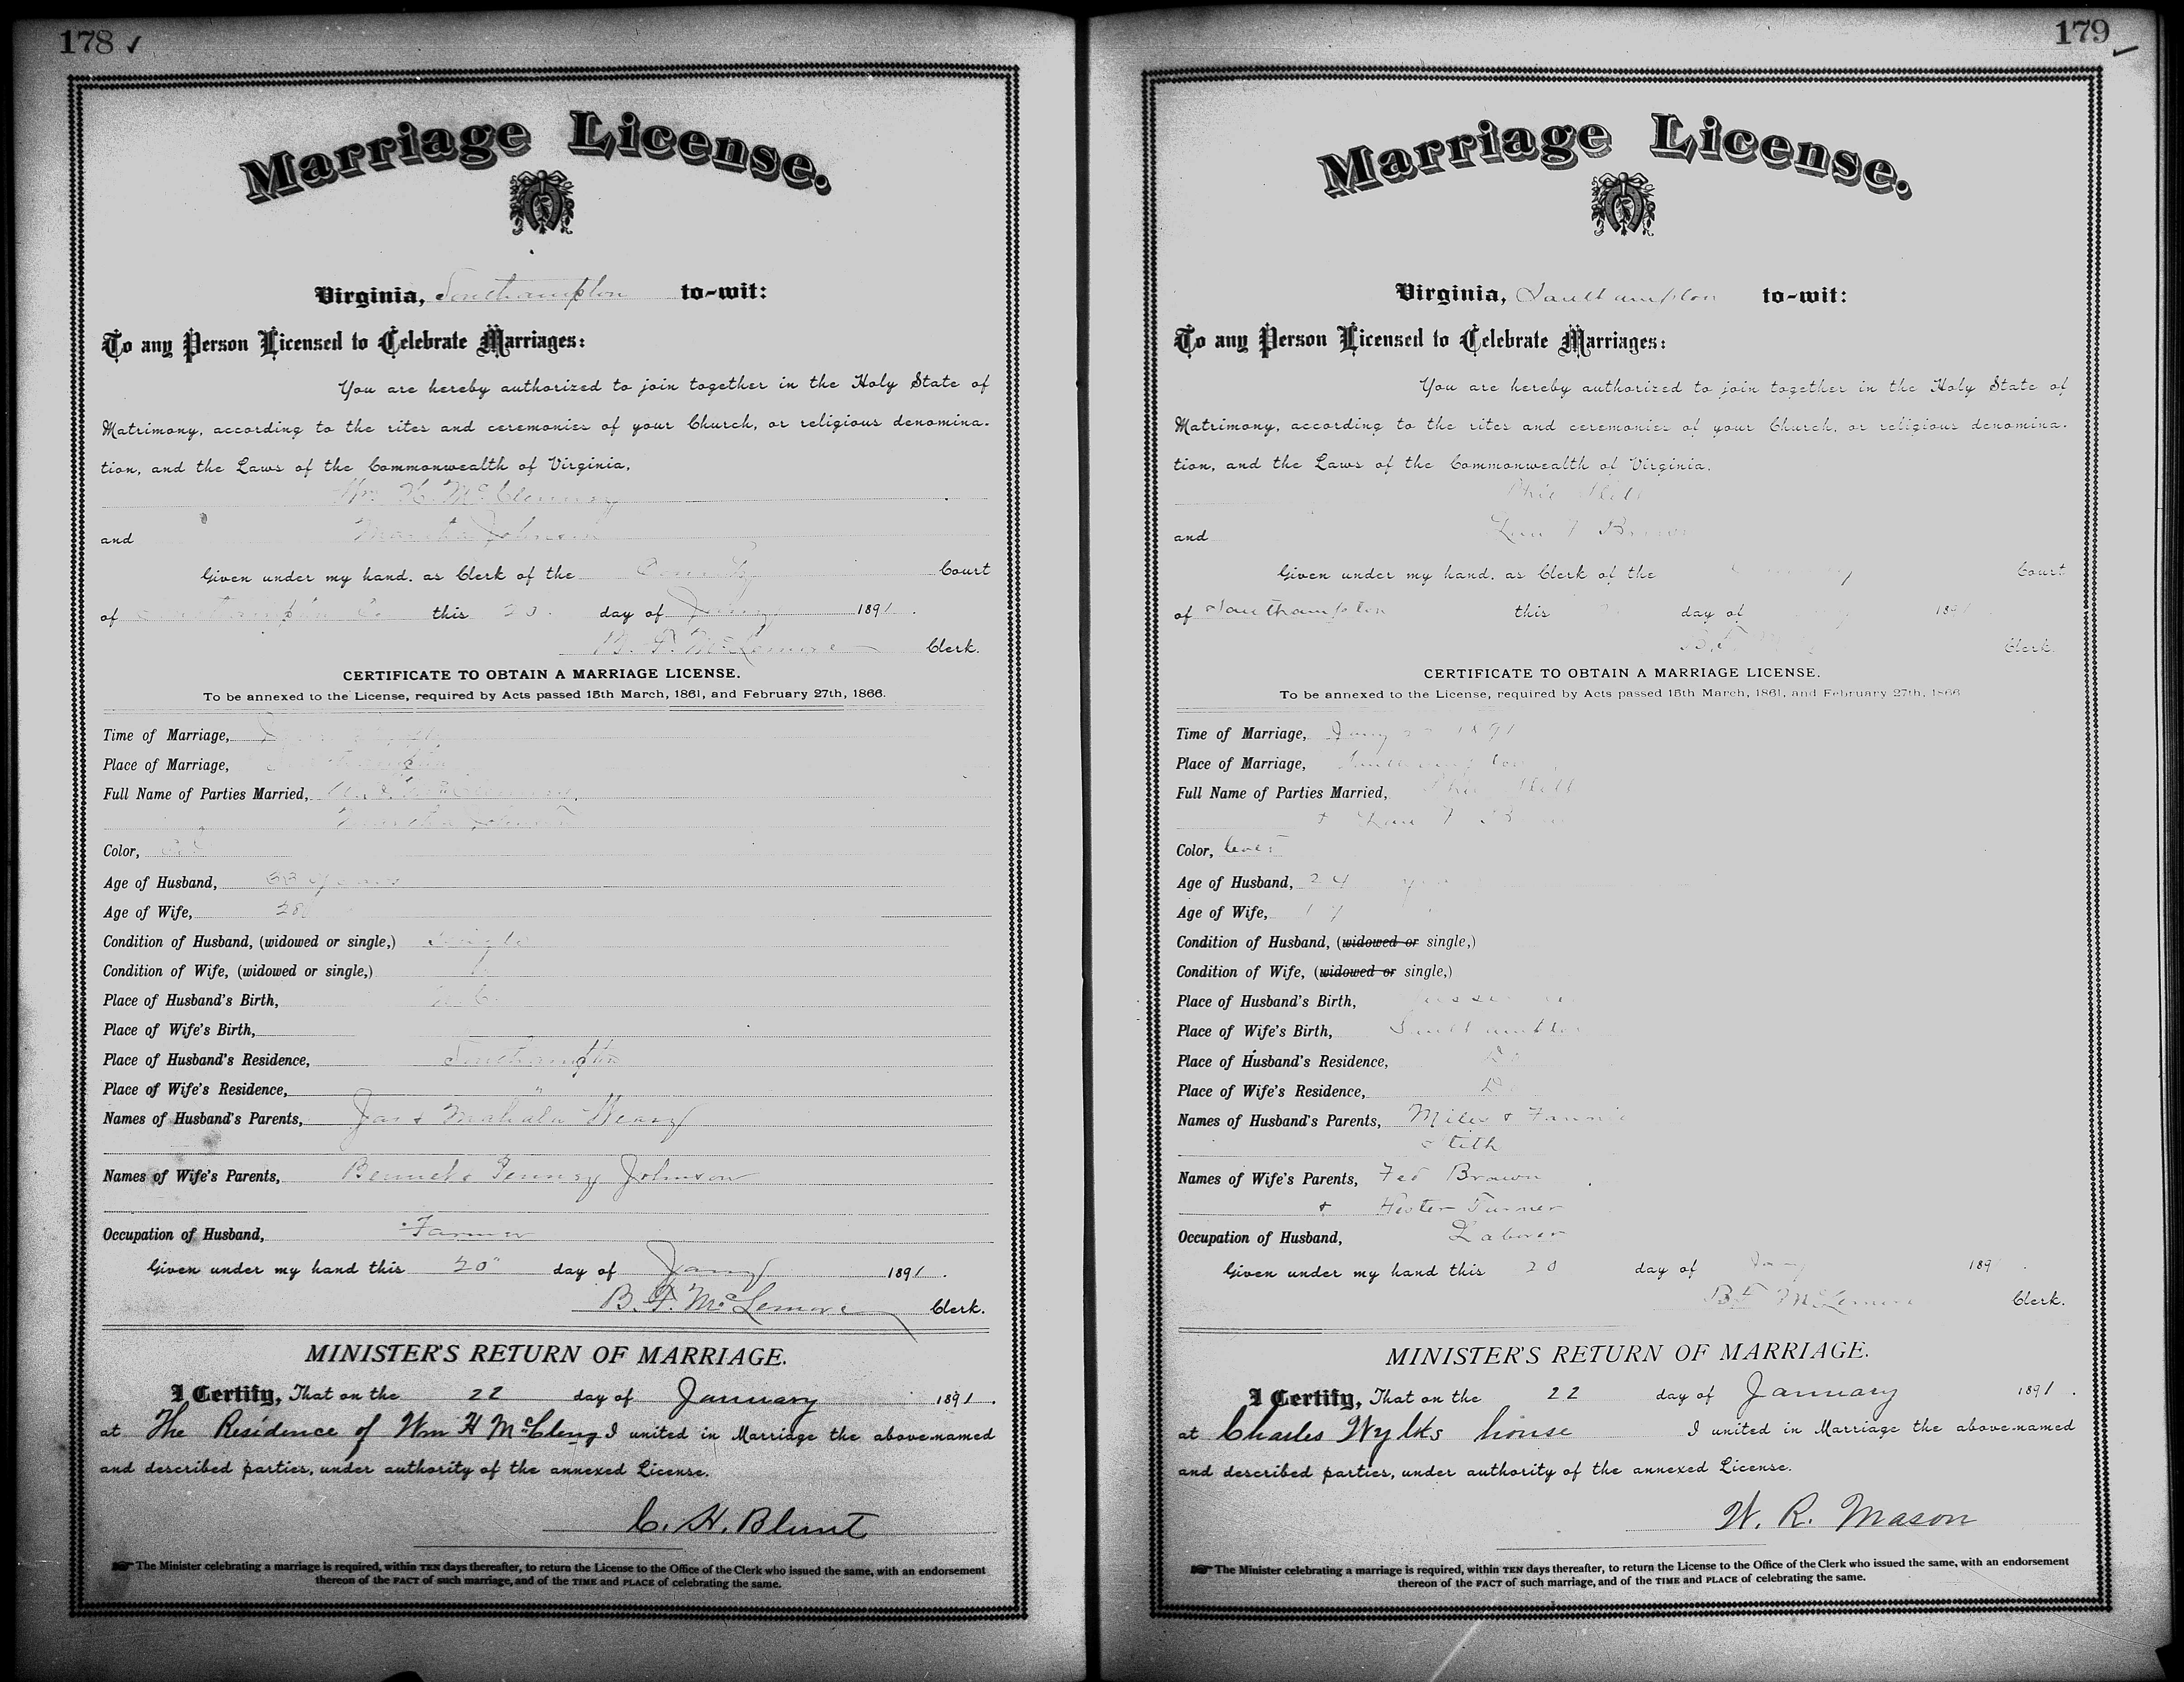 178
Marriage License.
Virginia, Southampton to-wit:
To any Person Licensed to Celebrate Marriages:
You are hereby authorized to join together in the Holy State of
Matrimony, according to the rites and ceremonies of your Church, or religious denomina-
tion, and the Laws of the Commonwealth of Virginia,
Wm H. McClenney
and Martha Johnson
Given under my hand, as Clerk of the County Court
of Southampton Co this 20 day of Jany 1891.
B. F. McLemore Clerk.
CERTIFICATE TO OBTAIN A MARRIAGE LICENSE.
To be annexed to the License, required by Acts passed 15th March, 1861, and February 27th, 1866.
Time of Marriage,
Place of Marriage, Southampton
Full Name of Parties Married,
Martha Johnson
Color,
Age of Husband, years
Age of Wife, 28
Condition of Husband, (widowed or single,) Single
Condition of Wife, (widowed or single,)
Place of Husband's Birth,
Place of Wife's Birth,
Place of Husband's Residence, Southampton
Place of Wife's Residence, "
Names of Husband's Parents, Jas & Mahala
Names of Wife's Parents, Johnson
Occupation of Husband, Farmer
Given under my hand this 20" day of Jany 1891.
B. F. McLemore Clerk.
MINISTER'S RETURN OF MARRIAGE.
I Certify, That on the 22 day of January 1891.
at The Residence of Wm H McCleny I united in Marriage the above-named
and described parties, under authority of the annexed License.
C. H. Blunt
The Minister celebrating a marriage is required, within TEN days thereafter, to return the License to the Office of the Clerk who issued the same, with an endorsement
thereon of the FACT of such marriage, and of the TIME and PLACE of celebrating the same.
179
Marriage License.
Virginia, Southampton to-wit:
To any Person Licensed to Celebrate Marriages:
You are hereby authorized to join together in the Holy State of
Matrimony, according to the rites and ceremonies of your Church, or religious denomina-
tion, and the Laws of the Commonwealth of Virginia.
and
Given under my hand, as Clerk of the Court
of Southampton this day of 189
Clerk.
CERTIFICATE TO OBTAIN A MARRIAGE LICENSE.
To be annexed to the License, required by Acts passed 15th March, 1861, and February 27th, 1866
Time of Marriage, Jany 1891
Place of Marriage, Southampton
Full Name of Parties Married,
Color,
Age of Husband, 24
Age of Wife,
Condition of Husband, (widowed or single,)
Condition of Wife, (widowed or single,)
Place of Husband's Birth,
Place of Wife's Birth, Southampton
Place of Husband's Residence,
Place of Wife's Residence,
Names of Husband's Parents, Miles & Fannie
Stith
Names of Wife's Parents, Fed Brown
& Hester Turner
Occupation of Husband, Laborer
Given under my hand this 20 day of Jany 189
BF McLemore Clerk.
MINISTER'S RETURN OF MARRIAGE.
I Certify, That on the 22 day of January 1891.
at Charles Wylks house I united in Marriage the above-named
and described parties, under authority of the annexed License.
W. R. Mason
The Minister celebrating a marriage is required, within TEN days thereafter, to return the License to the Office of the Clerk who issued the same, with an endorsement
thereon of the FACT of such marriage, and of the TIME and PLACE of celebrating the same.